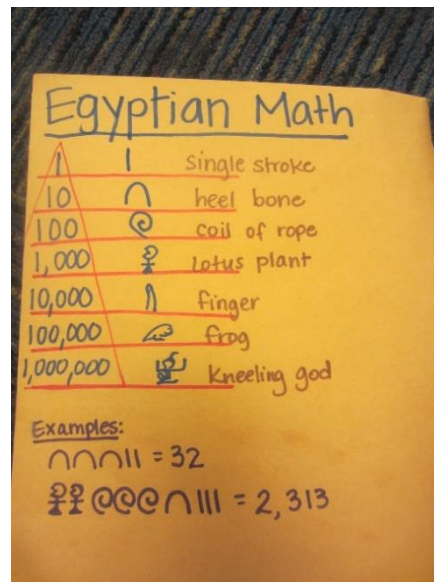 Egyptian Math
1 | single stroke
10 ∩ heel bone
100 coil of rope
1,000 lotus plant
10,000 finger
100,000 frog
1,000,000 kneeling god
Examples:
∩∩∩|| = 32
∩||| = 2,313